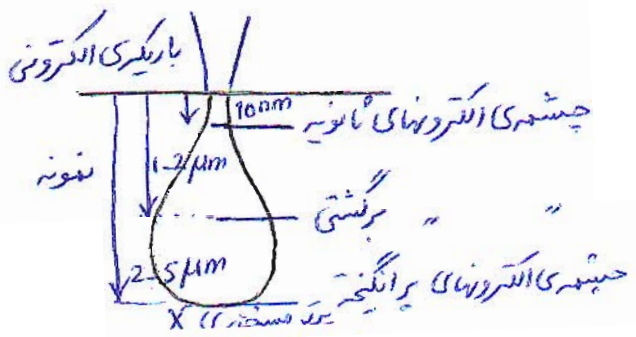 باریکه‌ی الکترونی
10 nm
چشمه‌ی الکترونهای ثانویه
1-2 μm
نمونه
" " برگشتی
2-5 μm
چشمه‌ی الکترونهای برانگیخته
X